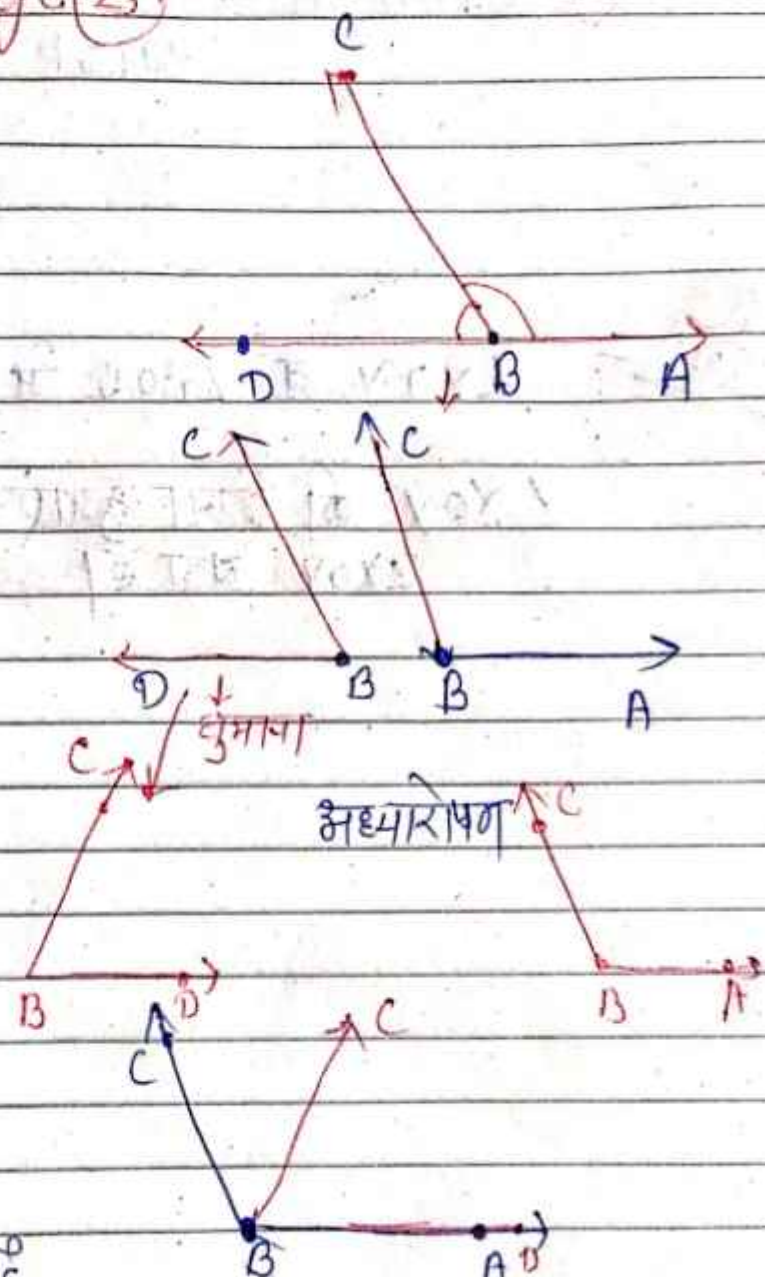 25
C
D B A
C C
D B B A
घुमाना
C
अध्यारोपण C
B D B A
C C
B A D